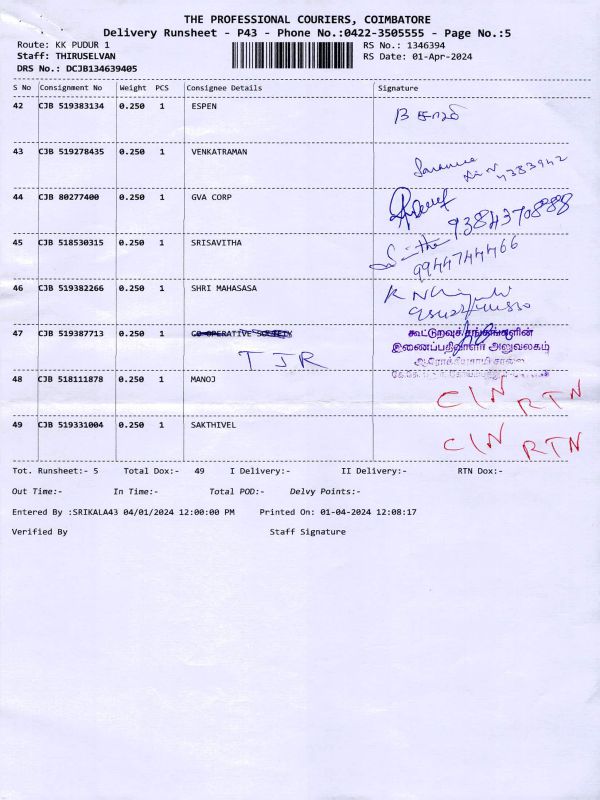 THE PROFESSIONAL COURIERS, COIMBATORE
Delivery Runsheet - P43 - Phone No.:0422-3505555 - Page No.:5
Route: KK PUDUR 1 RS No.: 1346394
Staff: THIRUSELVAN RS Date: 01-Apr-2024
DRS No.: DCJB134639405
S No Consignment No Weight PCS Consignee Details Signature
42 CJB 519383134 0.250 1 ESPEN
43 CJB 519278435 0.250 1 VENKATRAMAN
44 CJB 80277400 0.250 1 GVA CORP
45 CJB 518530315 0.250 1 SRISAVITHA
9944744466
46 CJB 519382266 0.250 1 SHRI MAHASASA
47 CJB 519387713 0.250 1 CO-OPERATIVE SOCIETY
கூட்டுறவுச் சங்கங்களின்
இணைப்பதிவாளர் அலுவலகம்
TJR
48 CJB 518111878 0.250 1 MANOJ C/N RTN
49 CJB 519331004 0.250 1 SAKTHIVEL C/N RTN
Tot. Runsheet:- 5 Total Dox:- 49 I Delivery:- II Delivery:- RTN Dox:-
Out Time:- In Time:- Total POD:- Delvy Points:-
Entered By :SRIKALA43 04/01/2024 12:00:00 PM Printed On: 01-04-2024 12:08:17
Verified By Staff Signature